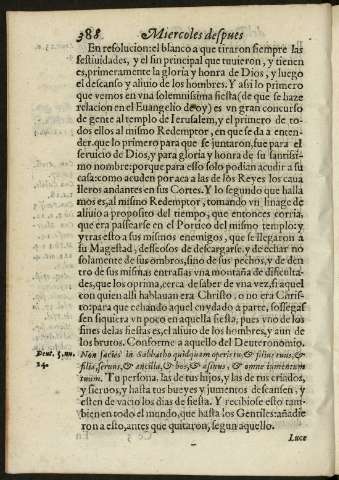 388 Miercoles despues
En resolucion: el blanco a que tiraron siempre las
festiuidades, y el fin principal que tuuieron, y tienen
es, primeramente la gloria y honra de Dios, y luego
el descanso y aliuio de los hombres. Y assi lo primero
que vemos en vna solemnissima fiesta (de que se haze
relacion en el Euangelio de oy) es vn gran concurso
de gente al templo de Ierusalem, y el primero de to-
dos ellos al mismo Redemptor, en que se da a enten-
der. que lo primero para que se juntaron, fue para el
seruicio de Dios, y para gloria y honra de su santissi-
mo nombre: porque para esso solo podian acudir a su
casa: como acuden por aca a las de los Reyes los caua
lleros andantes en sus Cortes. Y lo segundo que halla
mos es, al mismo Redemptor, tomando vn linage de
aliuio a proposito del tiempo, que entonces corria,
que era passearse en el Portico del mismo templo: y
y tras esto a sus mismos enemigos, que se llegaron a
su Magestad, desseosos de descargarse, y de echar no
solamente de sus ombros, sino de sus pechos, y de den
tro de sus mismas entrañas vna montaña de dificulta-
des, que los oprima, cerca de saber de vna vez, si aquel
con quien alli hablauan era Christo, o no era Chris-
to: para que echando aquel cuydado a parte, sossegas
sen siquiera vn poco en aquella fiesta, pues vno de los
fines de las fiestas es, el aliuio de los hombres, y aun de
los brutos. Conforme a aquello del Deuteronomio.
Deut. 5. nu. Non facies in Sabbatho quidquam operis tu, & filius tuus, &
14. filia, seruus, & ancilla, & bos, & asinus, & omne iumentum
tuum. Tu persona, las de tus hijos, y las de tus criados,
y sieruos, y hasta tus bueyes y jumentos descansen, y
esten de vacio los dias de fiesta. Y recibiose esto tam-
bien en todo el mundo, que hasta los Gentiles: añadie
ron a esto, antes que quitaron, segun aquello.
Luce